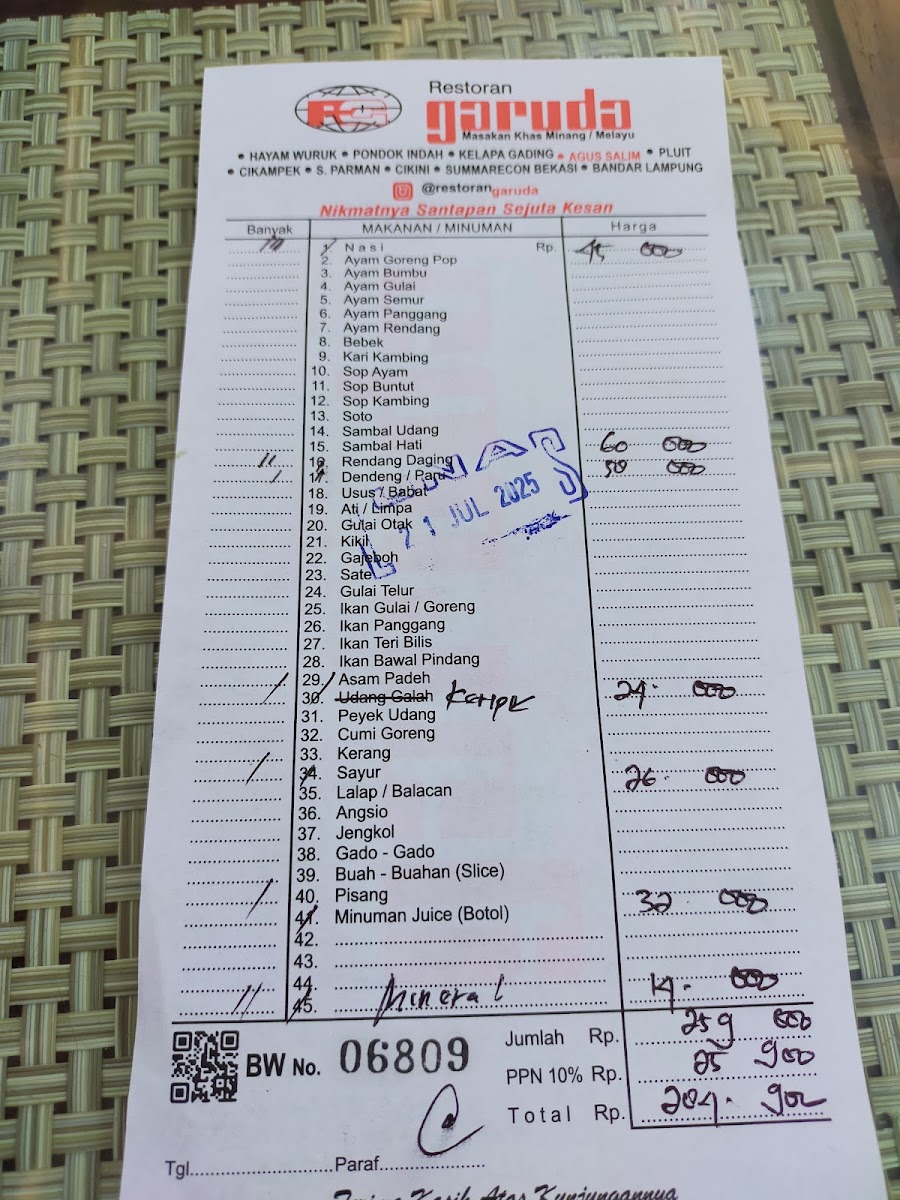 RG
Restoran
garuda
Masakan Khas Minang / Melayu
• HAYAM WURUK • PONDOK INDAH • KELAPA GADING • AGUS SALIM • PLUIT
• CIKAMPEK • S. PARMAN • CIKINI • SUMMARECON BEKASI • BANDAR LAMPUNG
@restorangaruda
Nikmatnya Santapan Sejuta Kesan
Banyak MAKANAN / MINUMAN Harga
111 1. Nasi Rp. 45 000
2. Ayam Goreng Pop
3. Ayam Bumbu
4. Ayam Gulai
5. Ayam Semur
6. Ayam Panggang
7. Ayam Rendang
8. Bebek
9. Kari Kambing
10. Sop Ayam
11. Sop Buntut
12. Sop Kambing
13. Soto
14. Sambal Udang
15. Sambal Hati
11 16. Rendang Daging 60 000
1 17. Dendeng / Paru 58 000
18. Usus / Babat
19. Ati / Limpa
20. Gulai Otak
21. Kikil
22. Gajeboh
23. Sate
LUNAS
21 JUL 2025
24. Gulai Telur
25. Ikan Gulai / Goreng
26. Ikan Panggang
27. Ikan Teri Bilis
28. Ikan Bawal Pindang
29. Asam Padeh
1 30. Udang Galah 24. 000
31. Peyek Udang
32. Cumi Goreng
33. Kerang
1 34. Sayur 26. 000
35. Lalap / Balacan
36. Angsio
37. Jengkol
38. Gado - Gado
39. Buah - Buahan (Slice)
40. Pisang
1 41. Minuman Juice (Botol) 32. 000
42.
43.
44.
11 45. Mineral 14. 000
BW No. 06809
Jumlah Rp. 259 000
PPN 10% Rp. 25 900
Total Rp. 284. 900
Tgl. Paraf
Terima Kasih Atas Kunjungannya